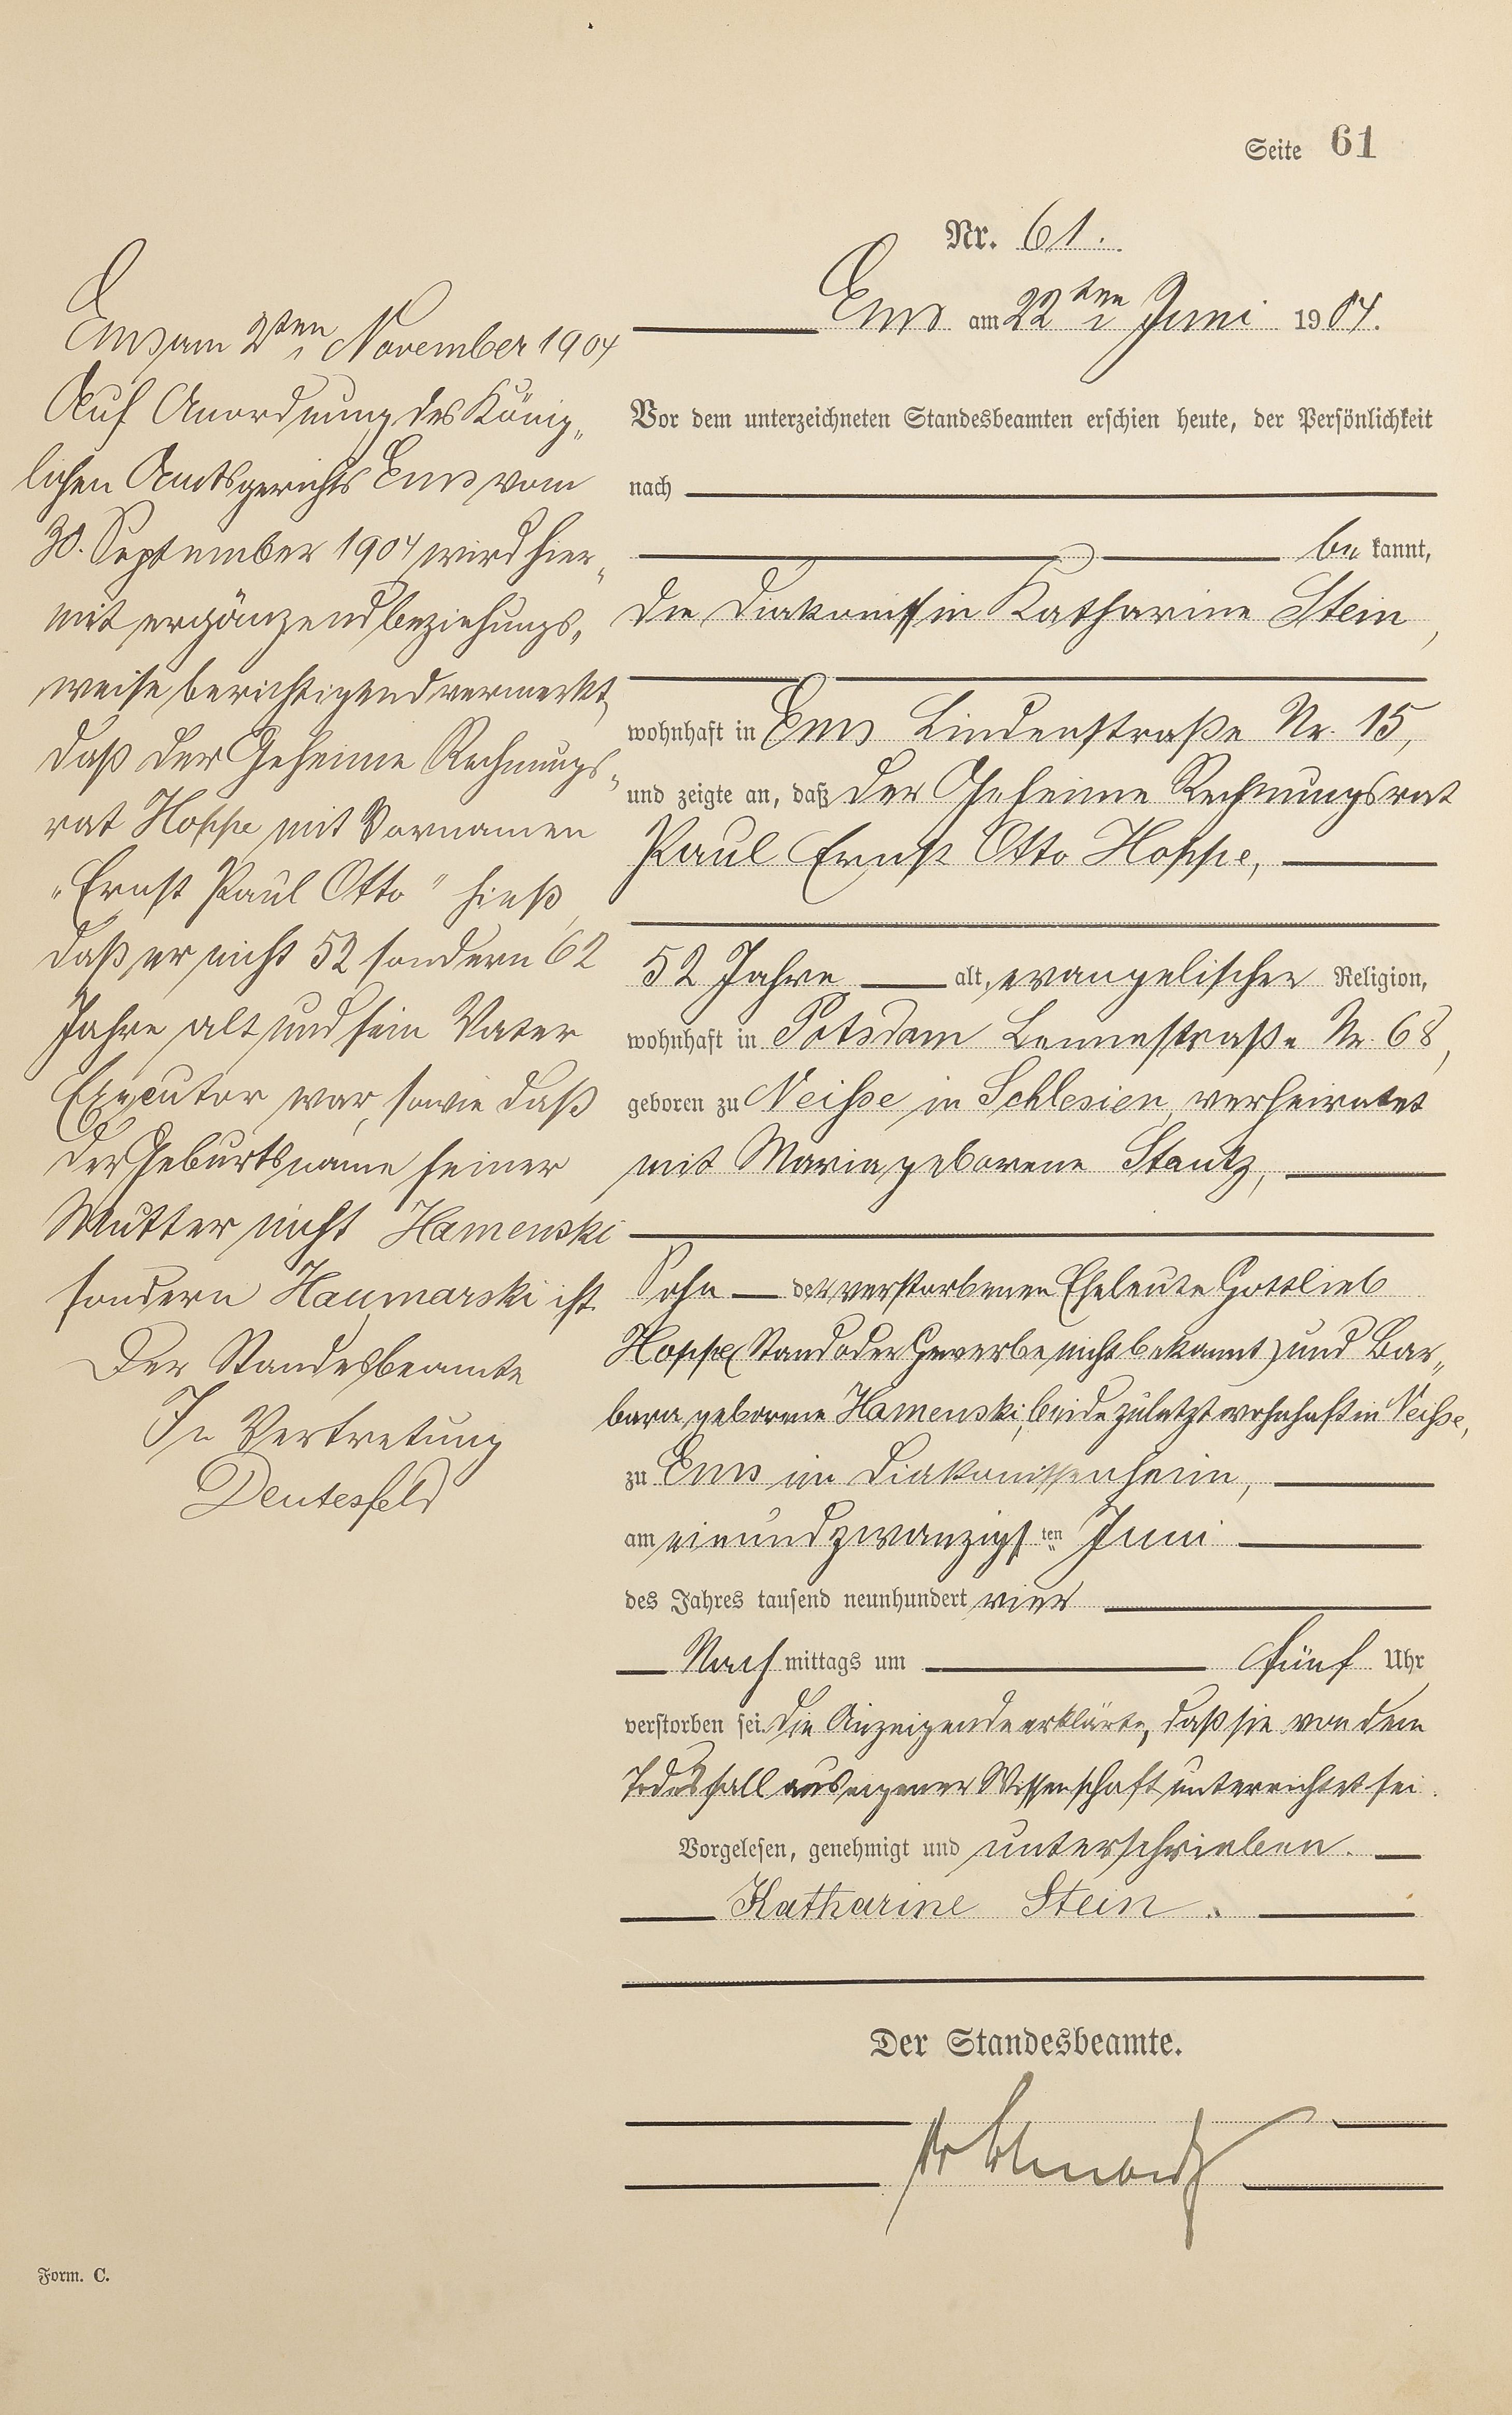 Seite 61
Nr. 61.
Ems am 22ten Juni 1904.
Vor dem unterzeichneten Standesbeamten erschien heute, der Persönlichkeit
nach
be kannt,
die Diakonissin Katharine Stein,
wohnhaft in Ems Lindenstraße Nr. 15,
und zeigte an, daß der Geheime Rechnungsrat
Paul Ernst Otto Hoppe,
52 Jahre alt, evangelischer Religion,
wohnhaft in Potsdam Lennestraße Nr. 68,
geboren zu Neisse in Schlesien, verheiratet
mit Maria geborene Stautz,
Sohn der verstorbenen Eheleute Gottlieb
Hoppe (Stand oder Gewerbe nicht bekannt) und Bar„
bara geborene Hamenski, beide zuletzt wohnhaft in Neisse,
zu Ems im Diakonissenheim,
am einundzwanzigsten Juni
des Jahres tausend neunhundert vier
Nach mittags um fünf Uhr
verstorben sei. Die Anzeigende erklärte, daß sie von dem
Todesfall aus eigener Wissenschaft unterrichtet sei.
Vorgelesen, genehmigt und unterschrieben.
Katharine Stein.
Der Standesbeamte.
Ems am 2ten November 1904
Auf Anordnung des König„
lichen Amtsgerichts Ems vom
30. September 1904 wird hier„
mit ergänzend beziehungs„
weise berichtigend vermerkt,
daß der Geheime Rechnungs„
rat Hoppe mit Vornamen
„Ernst Paul Otto" hieß,
daß er nicht 52 sondern 62
Jahre alt und sein Vater
Executor war, sowie daß
der Geburtsname seiner
Mutter nicht Hamenski
sondern Haumarski ist.
Der Standesbeamte
In Vertretung
Deutesfeld
Form. C.